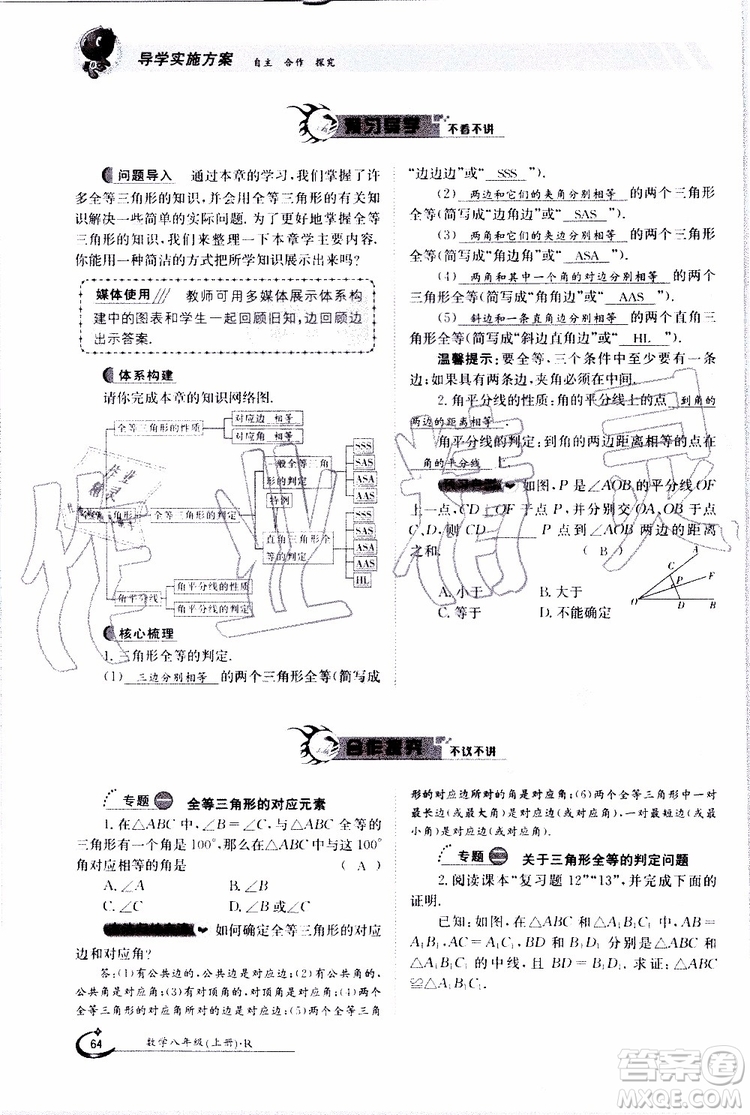 导学实施方案 自主 合作 探究
预习导学 不看不讲
问题导入 通过本章的学习,我们掌握了许
多全等三角形的知识,并能用全等三角形的知
识解决一些简单的实际问题.为了更好地掌握全等
三角形的知识,我们来整理一下本章学习内容.
你能用一种简洁的方式把所学知识展示出来吗?
媒体使用 教师可用多媒体展示体系构
建中的图表和学生一起回顾旧知,边回顾边
出示答案.
体系构建
请你完成本章的知识网络图.
全等三角形的性质
对应边 相等
对应角 相等
全等三角形的判定
一般全等三角
形的判定
SSS
SAS
ASA
AAS
特例
直角三角形全
等的判定
SSS
SAS
ASA
AAS
HL
角平分线
角平分线的性质
角平分线的判定
核心梳理
1.三角形全等的判定.
(1) 三边分别相等 的两个三角形全等(简写成
“边边边”或“ SSS ”).
(2) 两边和它们的夹角分别相等 的两个三角形
全等(简写成“边角边”或“ SAS ”).
(3) 两角和它们的夹边分别相等 的两个三角形
全等(简写成“角边角”或“ ASA ”).
(4) 两角和其中一个角的对边分别相等 的两个三角
形全等(简写成“角角边”或“ AAS ”).
(5) 斜边和一条直角边分别相等 的两个直角三角
形全等(简写成“斜边直角边”或“ HL ”).
温馨提示:要全等,三个条件中至少要有一条
边;如果有两条边,夹角必在中间.
2.角平分线的性质:角的平分线上的点 到角的两
边的距离相等 .
角平分线的判定:到角的两边距离相等的点在
角的平分线 上.
如图,P是∠AOB的平分线OF
上一点,CD⊥OF于点P,并分别交OA、OB于点
C、D,则CD 点P到∠AOB两边的距离
之和. ( B )
A.小于 B.大于
C.等于 D.不能确定
A
C
F
P
O
D
B
合作探究 不议不讲
专题一 全等三角形的对应元素
1.在△ABC中,∠B=∠C,与△ABC全等的
三角形有一个角是100°,那么在△ABC中与这个100°
角对应相等的角是 ( A )
A.∠A B.∠B
C.∠C D.∠B或∠C
如何确定全等三角形的对应
边和对应角?
答:(1)有公共边的,公共边是对应边;(2)有公共角的,
公共角是对应角;(3)有对顶角的,对顶角是对应角;(4)两个
全等三角形的对应角所对的边是对应边;(5)两个全等三角
形的对应边所对的角是对应角;(6)两个全等三角形中一对
最长边(或最大角)是对应边(或对应角),一对最短边(或最
小角)是对应边(或对应角).
专题二 关于三角形全等的判定问题
2.阅读课本“复习题12”“13”,并完成下面的
证明.
已知:如图,在△ABC和△A₁B₁C₁中,AB=
A₁B₁,AC=A₁C₁,BD和B₁D₁分别是△ABC和
△A₁B₁C₁的中线,且BD=B₁D₁.求证:△ABC
≌△A₁B₁C₁.
64 数学八年级(上册)·R
作业精灵
答案圈
MXQE.COM